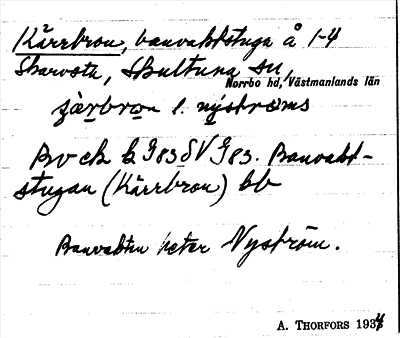 Kärrbron, banvaktstuga å 1-4
Skarvsta, Skultuna sn,
Norrbo hd, Västmanlands län
l. nyströms
Bv ck b G83 ö V G83. Banvakt-
stugan (Kärrbron) bb
Banvakten heter Nyström.
A. THORFORS 1934